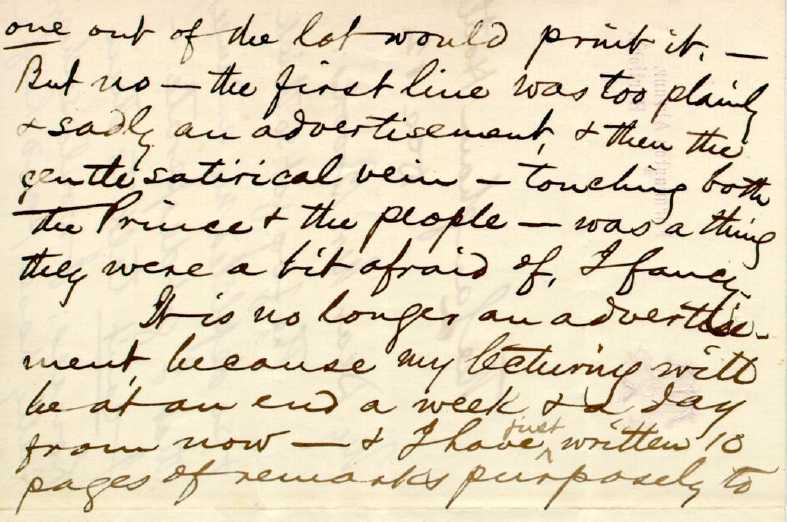 one out of the lot would print it. —
But no — the first line was too plainly
& sadly an advertisement, & then the
gentle satirical vein — touching both
the Prince & the people — was a thing
they were a bit afraid of, I fancy.
It is no longer an advertise-
ment, because my lecturing will
be at an end a week & a day
from now — & I have just written 10
pages of remarks purposely to